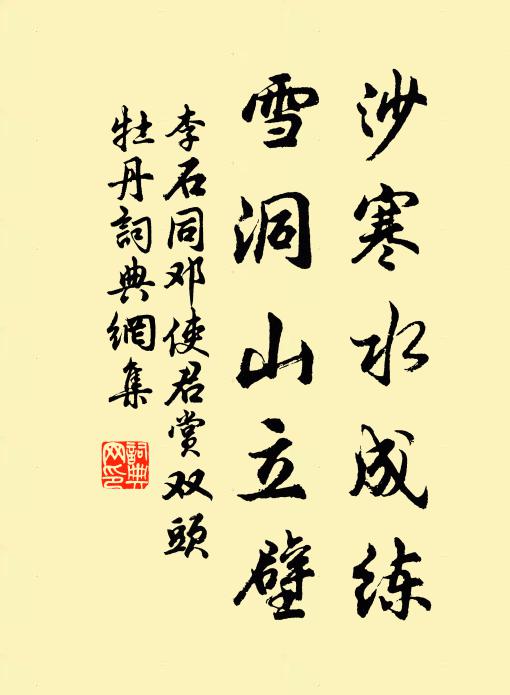 沙寒水成练
雪洞山立壁
李石同邓使君赏双头
牡丹詞典網集
詞典网印